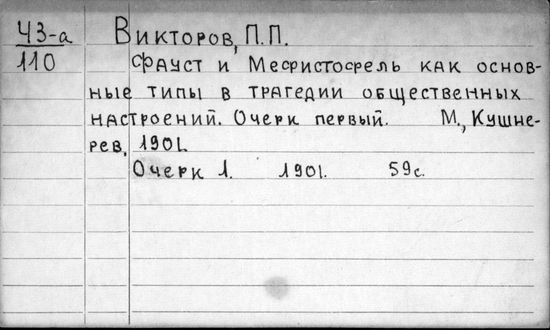 ЧЗ-а Викторов, П.П.
110 Фауст и Мефистофель как основ-
ные типы в трагедии общественных
настроений. Очерк первый. М., Кушне-
рев, 1901.
Очерк 1. 1901. 59с.